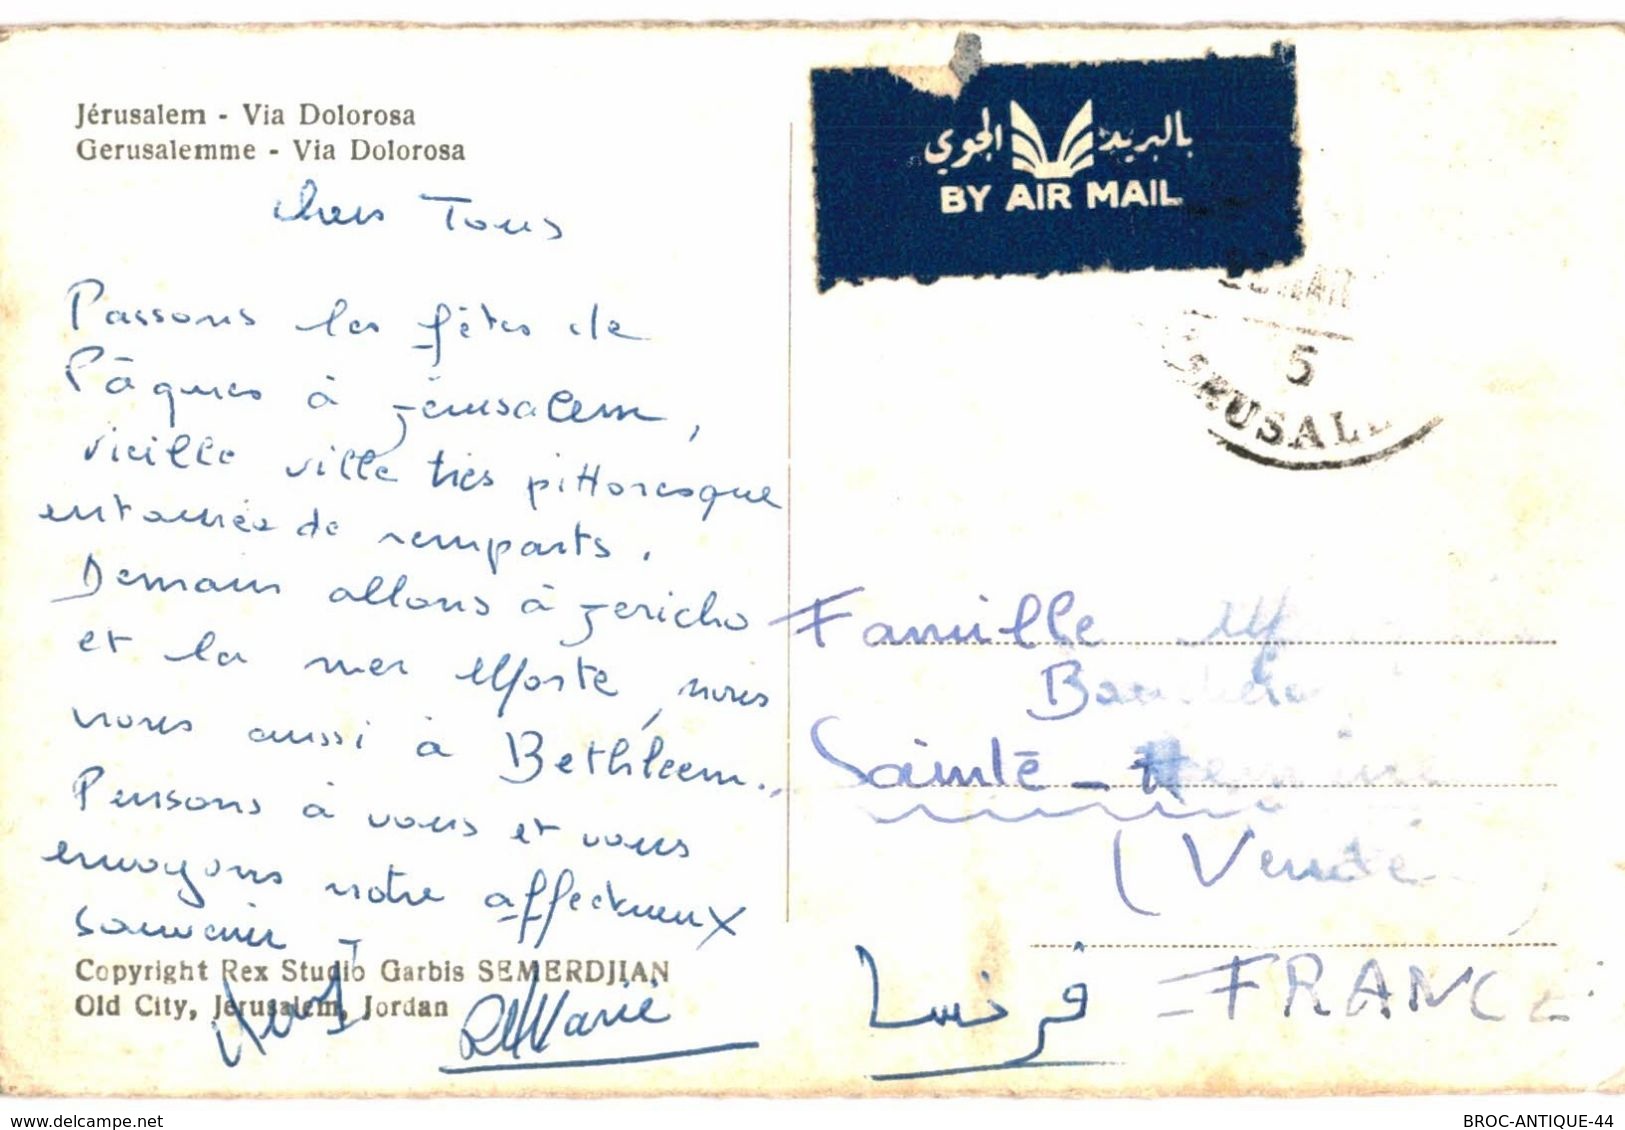 Jérusalem - Via Dolorosa
Gerusalemme - Via Dolorosa
Chers Tous
Passons les fêtes de
Pâques à Jérusalem,
vieille ville très pittoresque
entourée de remparts.
Demain allons à Jericho
et la mer Morte, nous
nous aussi à Bethléem..
Pensons à vous et vous
envoyons notre affectueux
souvenir
Copyright Rex Studio Garbis SEMERDJIAN
Old City, Jerusalem, Jordan
Marie
بالبريد الجوي
BY AIR MAIL
5
Famille
Sainte-
(Vendée
فرنسا FRANCE
delcampe.net
BROC-ANTIQUE-44